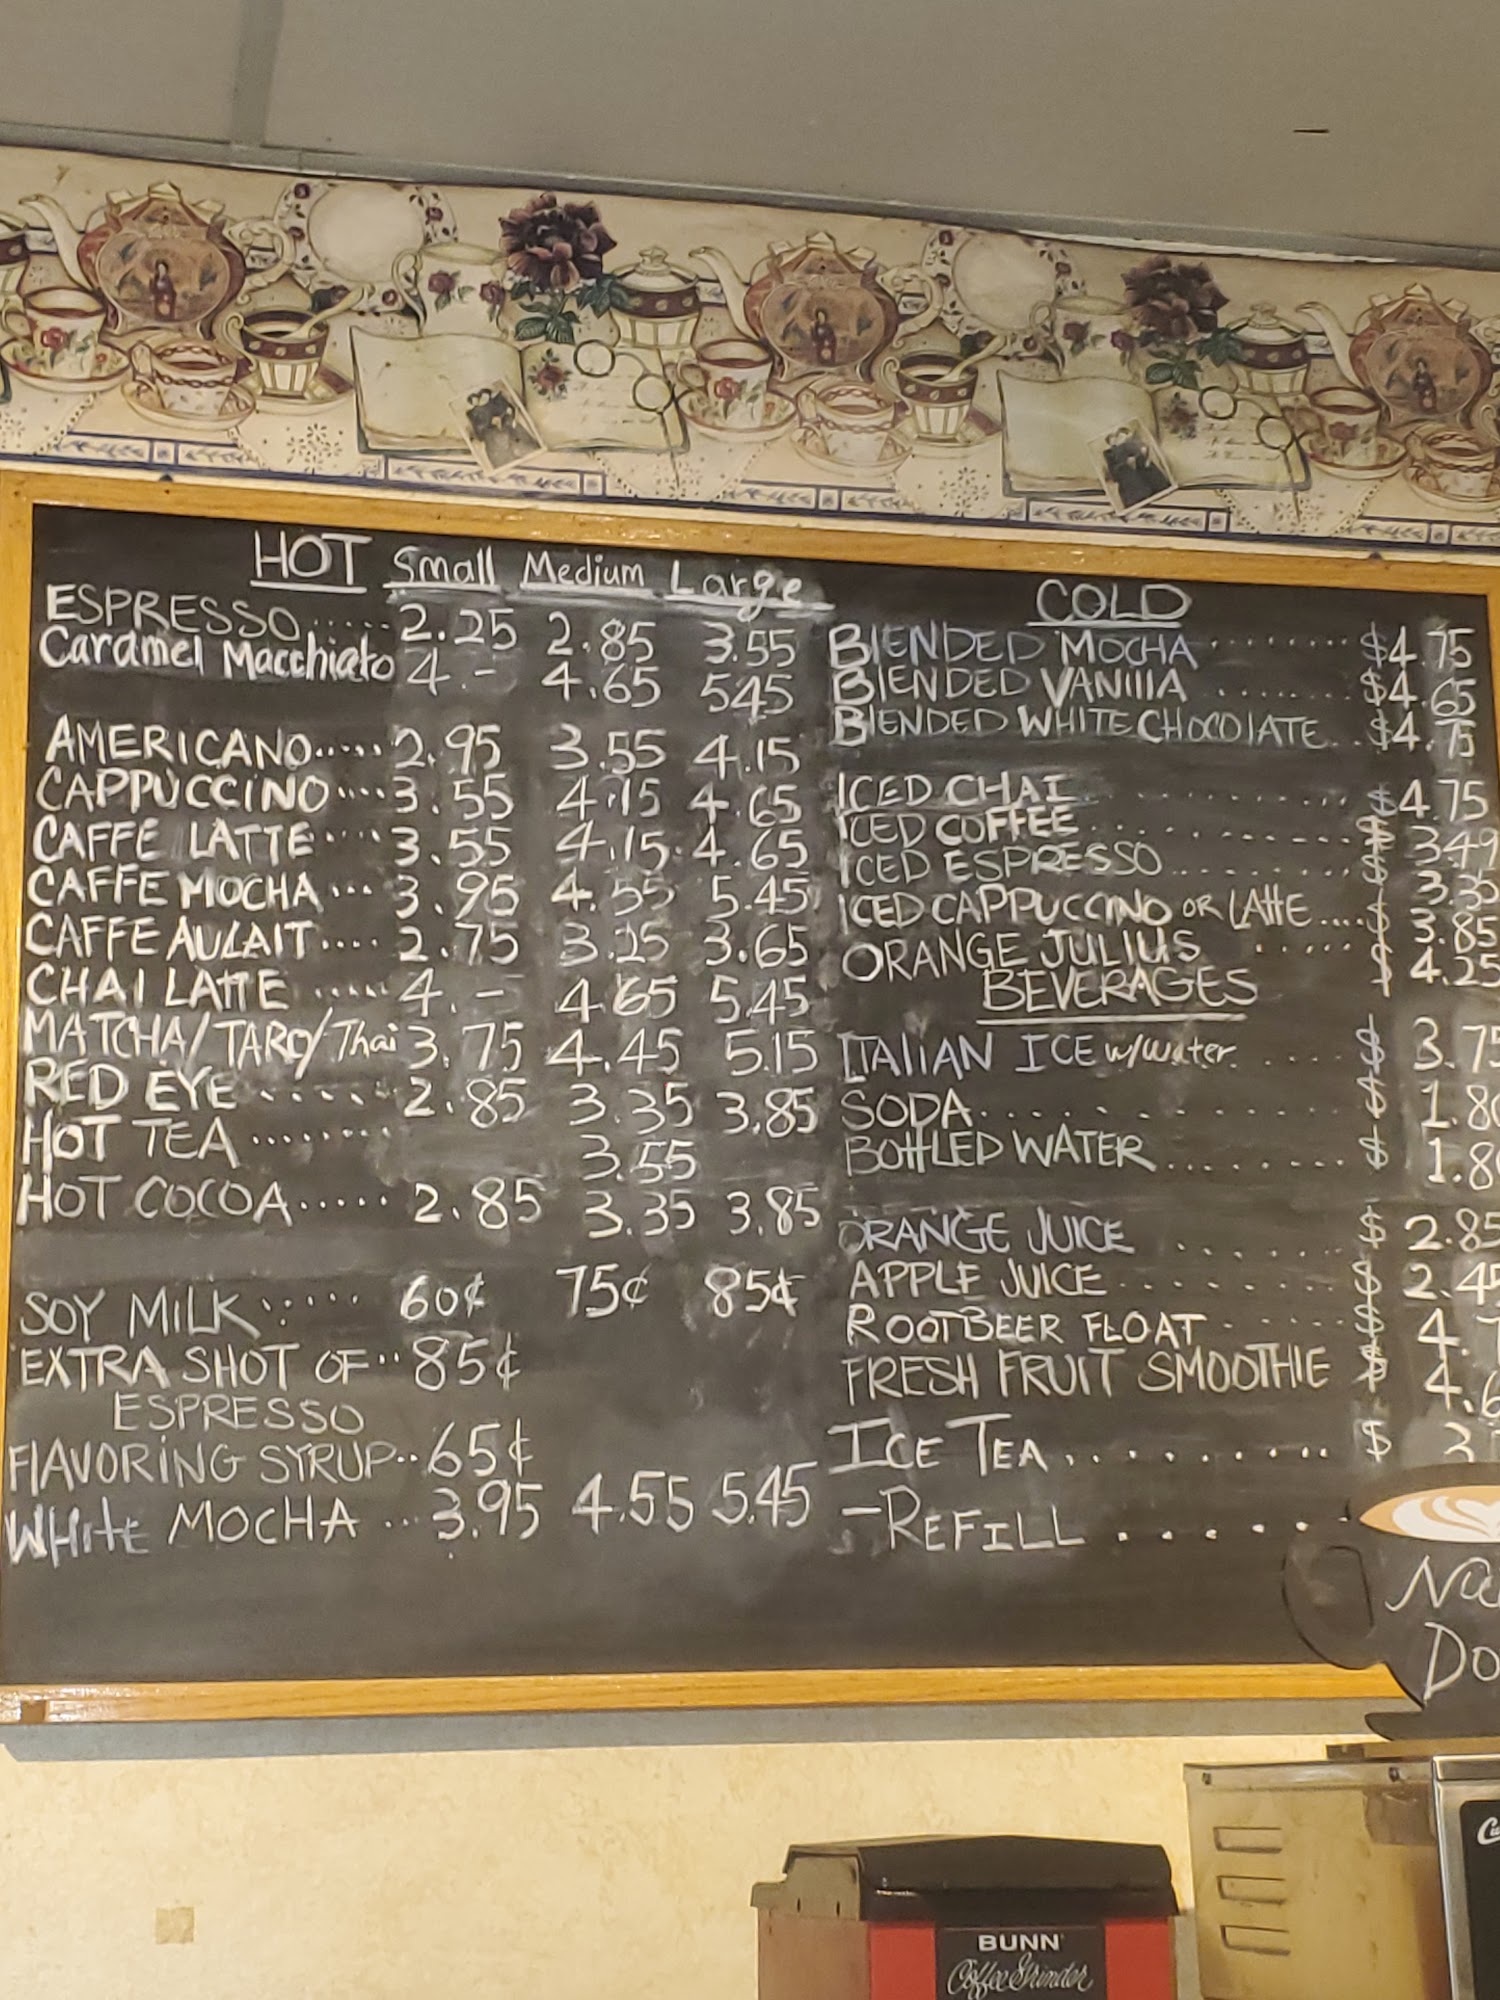 HOT Small Medium Large
ESPRESSO..... 2.25 2.85 3.55
Caramel Macchiato 4.- 4.65 545
AMERICANO..... 2.95 3.55 4.15
CAPPUCCINO.... 3.55 4.15 4.65
CAFFE LATTE.... 3.55 4.15 4.65
CAFFE MOCHA... 3.95 4.55 5.45
CAFFE AULAIT.... 2.75 3.25 3.65
CHAI LATTE ..... 4.- 4.65 5.45
MATCHA/TARO/Thai 3.75 4.45 5.15
RED EYE ..... 2.85 3.35 3.85
HOT TEA ........ 3.55
HOT COCOA..... 2.85 3.35 3.85
SOY MILK ..... 60¢ 75¢ 85¢
EXTRA SHOT OF.. 85¢
ESPRESSO
FLAVORING SYRUP.. 65¢
WHite MOCHA ... 3.95 4.55 5.45
COLD
BLENDED MOCHA ........ $4.75
BLENDED VANILLA ........ $4.65
BLENDED WHITE CHOCOLATE... $4.75
ICED CHAI .......... $4.75
ICED COFFEE .......... $ 3.49
ICED ESPRESSO ......... $
ICED CAPPUCCINO OR LATTE .... $ 3.85
ORANGE JULIUS ...... $ 4.25
BEVERAGES
ITALIAN ICE w/water ..... $ 3.75
SODA............. $ 1.8
BOTTLED WATER......... $ 1.8
ORANGE JUICE ....... $ 2.85
APPLE JUICE ........ $ 2.45
ROOTBEER FLOAT ...... $ 4.
FRESH FRUIT SMOOTHIE $ 4.6
ICE TEA .......... $ 3
-REFILL .......
Do
BUNN
Coffee Grinder